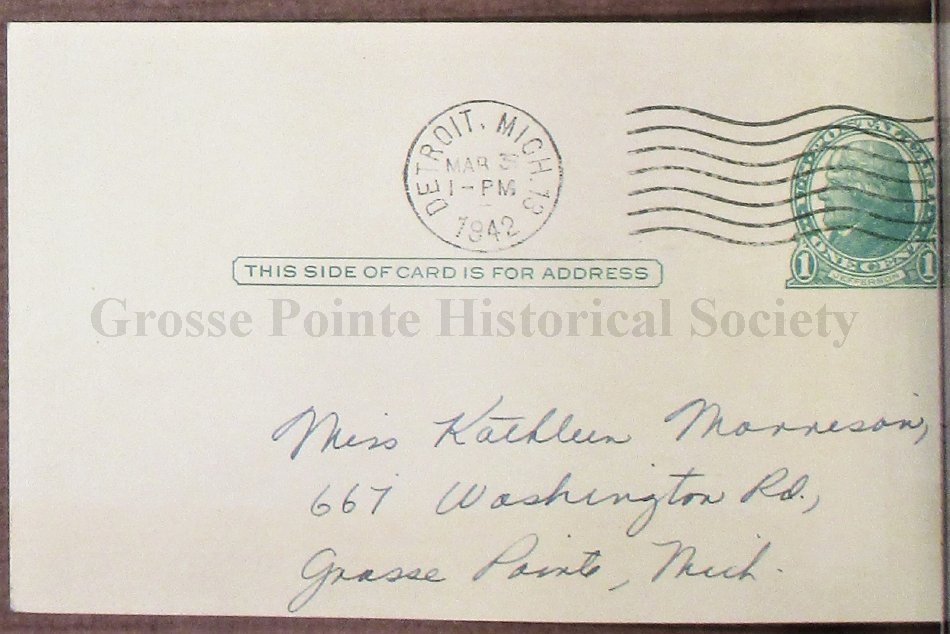 DETROIT, MICH. 13
MAR 3
1-PM
1942
ONE CENT
1 JEFFERSON 1
THIS SIDE OF CARD IS FOR ADDRESS
Grosse Pointe Historical Society
Miss Kathleen Morrison,
667 Washington Rd.,
Grosse Pointe, Mich.